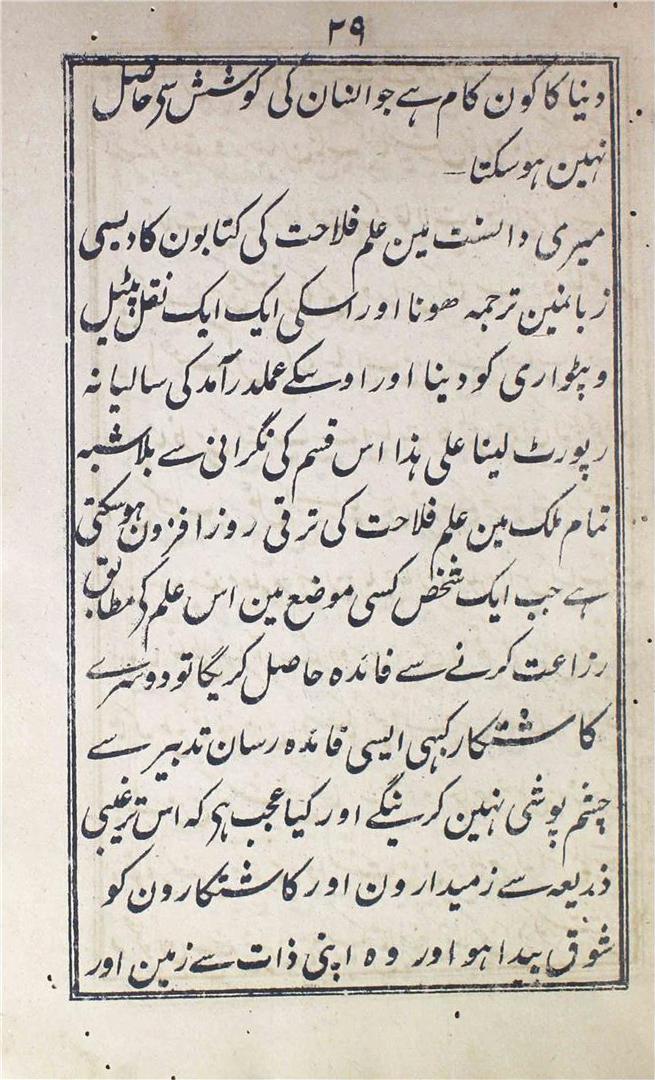 ۲۹
دنیا کا کون کام ہے جو انسان کی کوشش سے حاصل
نہین ہو سکتا—
میری دانست مین علم فلاحت کی کتابون کا دیسی
زبانمین ترجمہ ھونا اور اسکی ایک ایک نقل پٹیل
و پٹواری کو دینا اور اوسکے عملدرآمد کی سالیانہ
رپورٹ لینا علی ہذا اس قسم کی نگرانی سے بلاشبہ
تمام ملک مین علم فلاحت کی ترقی روز افزون ہو سکتی
ہے جب ایک شخص کسی موضع مین اس علم کے مطابق
رزاعت کرنے سے فائدہ حاصل کریگا تو دوسرے
کاشتکار کبہی ایسی فائدہ رسان تدبیر سے
چشم پوشی نہین کرینگے اور کیا عجب ہے کہ اس ترغیبی
ذریعہ سے زمیدارون اور کاشتکارون کو
شوق پیدا ہو اور وہ اپنی ذات سے زمین اور